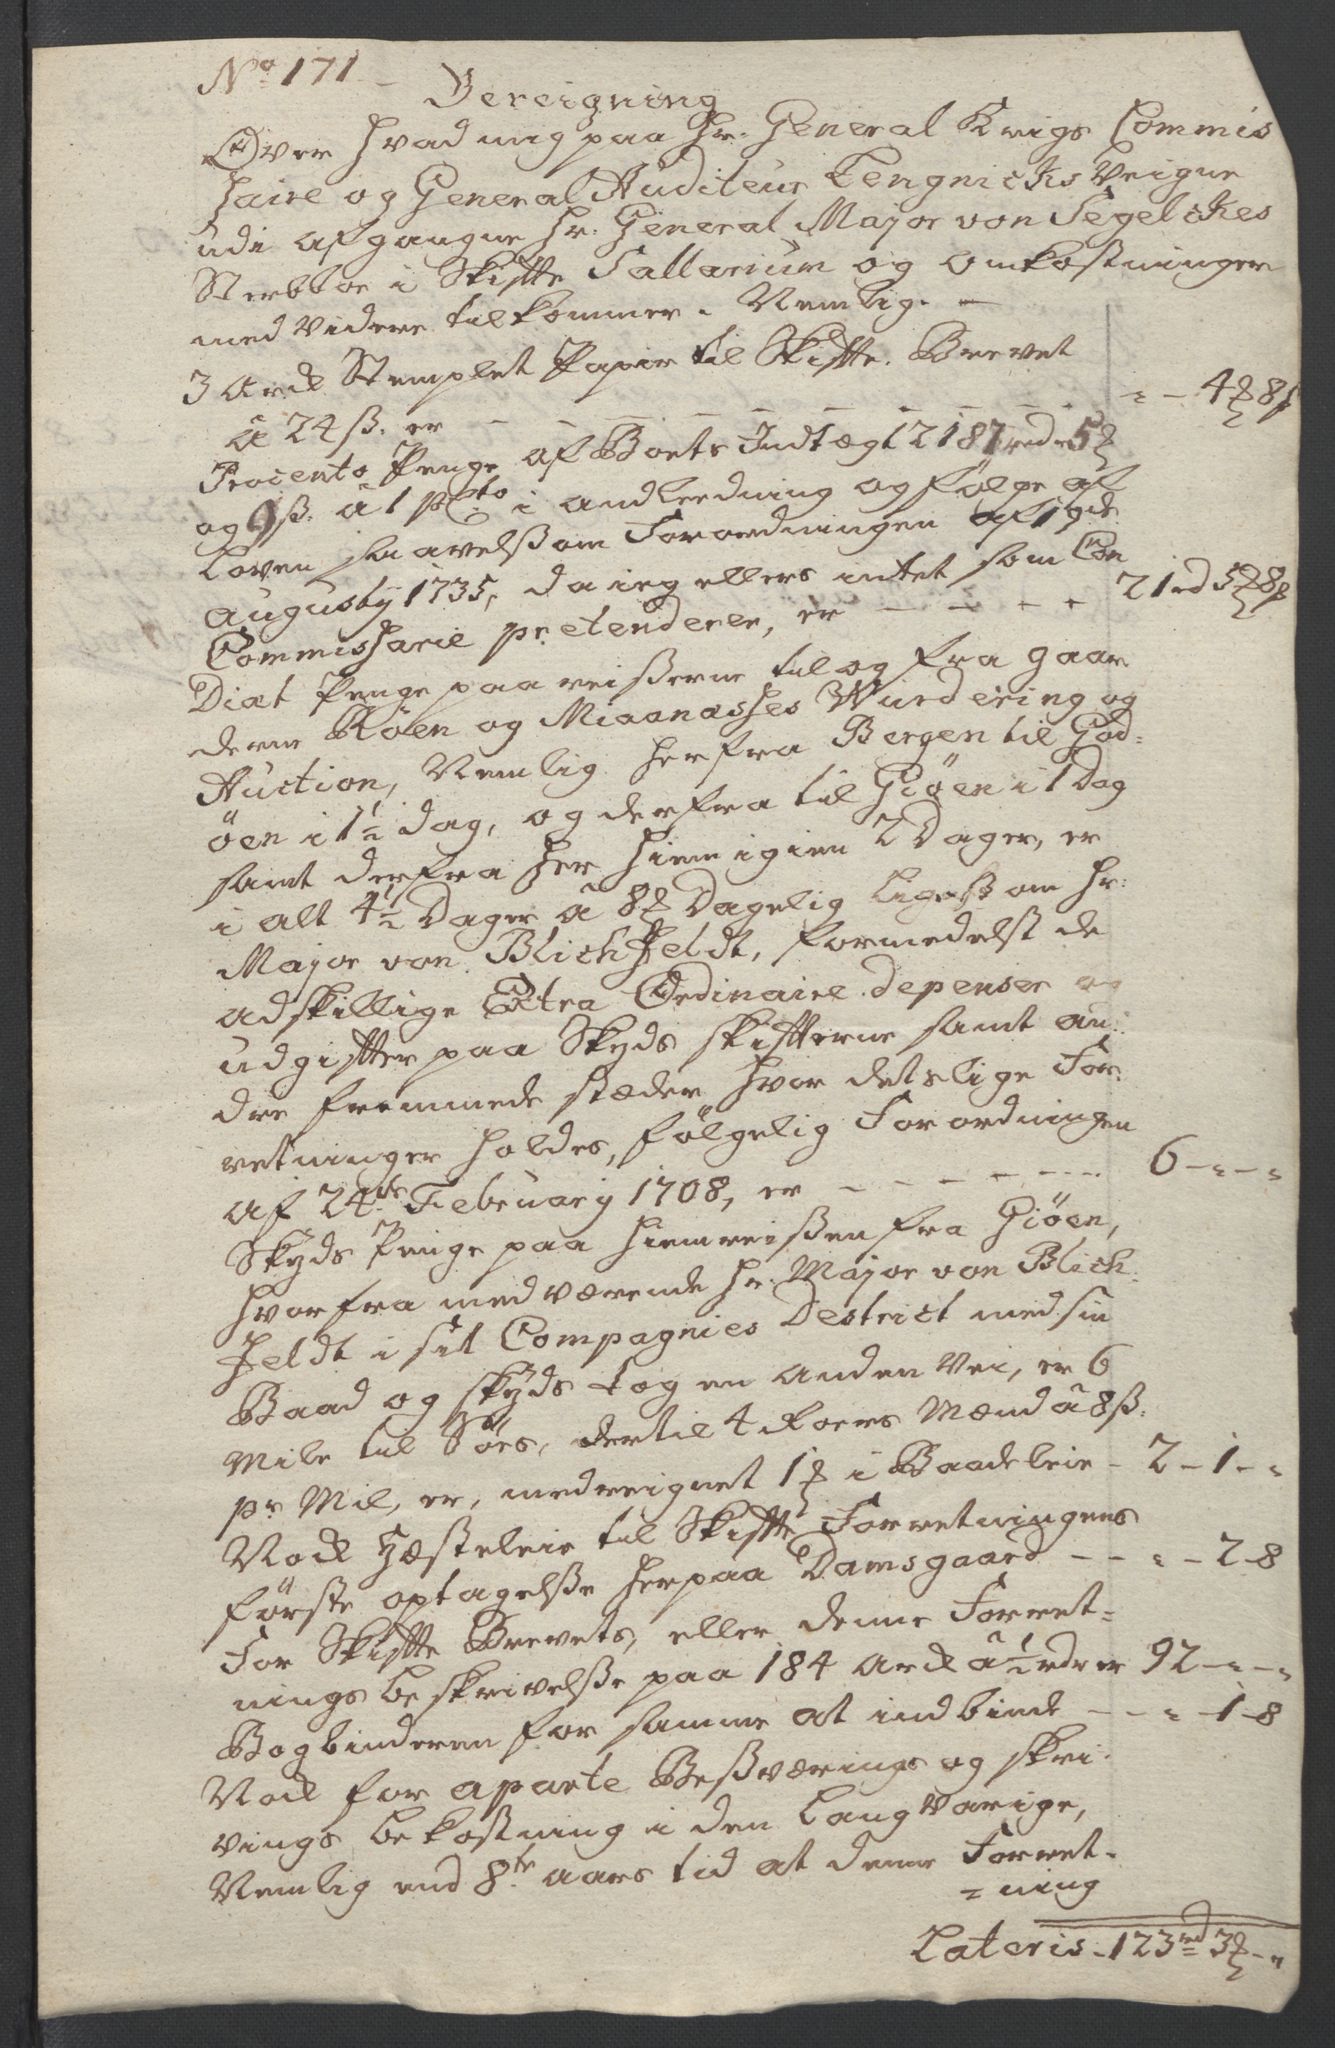 No 171
Bereigning
Over hvad mig paa Hr. General Krigs Commis
saire og General Auditeur Tengnicks Veigne
udi afgangne Hr. General Major von Segelckes
Sterbboe i Skifte Sallarium og omkostninger
med Videre tilkommer. Nemlig. –
3 Arck Stemplet Papir til Skifte. Brevet
à 24 ß. er – – – – – – – – " – 4 ₰ 8 ß
Procento Penge af Boets Indtægt 2187 rd 5 ₰
og 9 ß. à 1 Pcto i andleedning og følge af
Loven saavelsom Forordningen af
Augusty 1735, da ieg ellers intet som Con
Commissarie pretenderer, er – – – – – 21 rd 5 ₰ 8 ß
Diæt Penge paa reißerne til og fra gaar
derne Røen og Miaanæsses Wurdering og
Auction, Nemlig herfra Bergen til God-
øen i 1½ dag, og derfra til Giøen i 1 Dag
samt derfra her hiem igien 2 Dager, er
i alt 4½ Dager à 8 ₰ Dagelig ligesom Hr:
Major von Blichfeldt, formedelst de
adskillige Extra Ordinaire depenser og
udgifter paa Skyds skifterne samt an-
dre fremmede stæder hvor detslige For-
retninger holdes, følgelig Forordningen
af 24de February 1708, er – – – – – – – 6 – " – "
Skyds Penge paa hiemreißen fra Giøen,
hvorfra medværende Hr. Major von Blich-
feldt i sit Compagnies Destrict med sin
Baad og skyds tog en anden Vei, er 6
Mile til Søes, dertil 4 Roers Mænd à 8 ß.
pr Mil, er, medreignet 1 ₰ i Baadeleie – 2 – 1 – "
Nock Hæsteleie til Skifte Forretningens
første optagelße her paa Damsgaard – – " – 2 – 8
For Skifte Brevets, eller denne Forret-
nings beskrivelße paa 184 Arck à ½ rdr er 92 – " – "
Bogbinderen for samme at indbinde – – " – 1 – 8
Nock for aparte Beßværings og skri-
vings bekostning i den langvarige,
Nemlig end 8te aars tid at denne Forret-
= ning
Lateris – 123 rd 3 ₰ – "